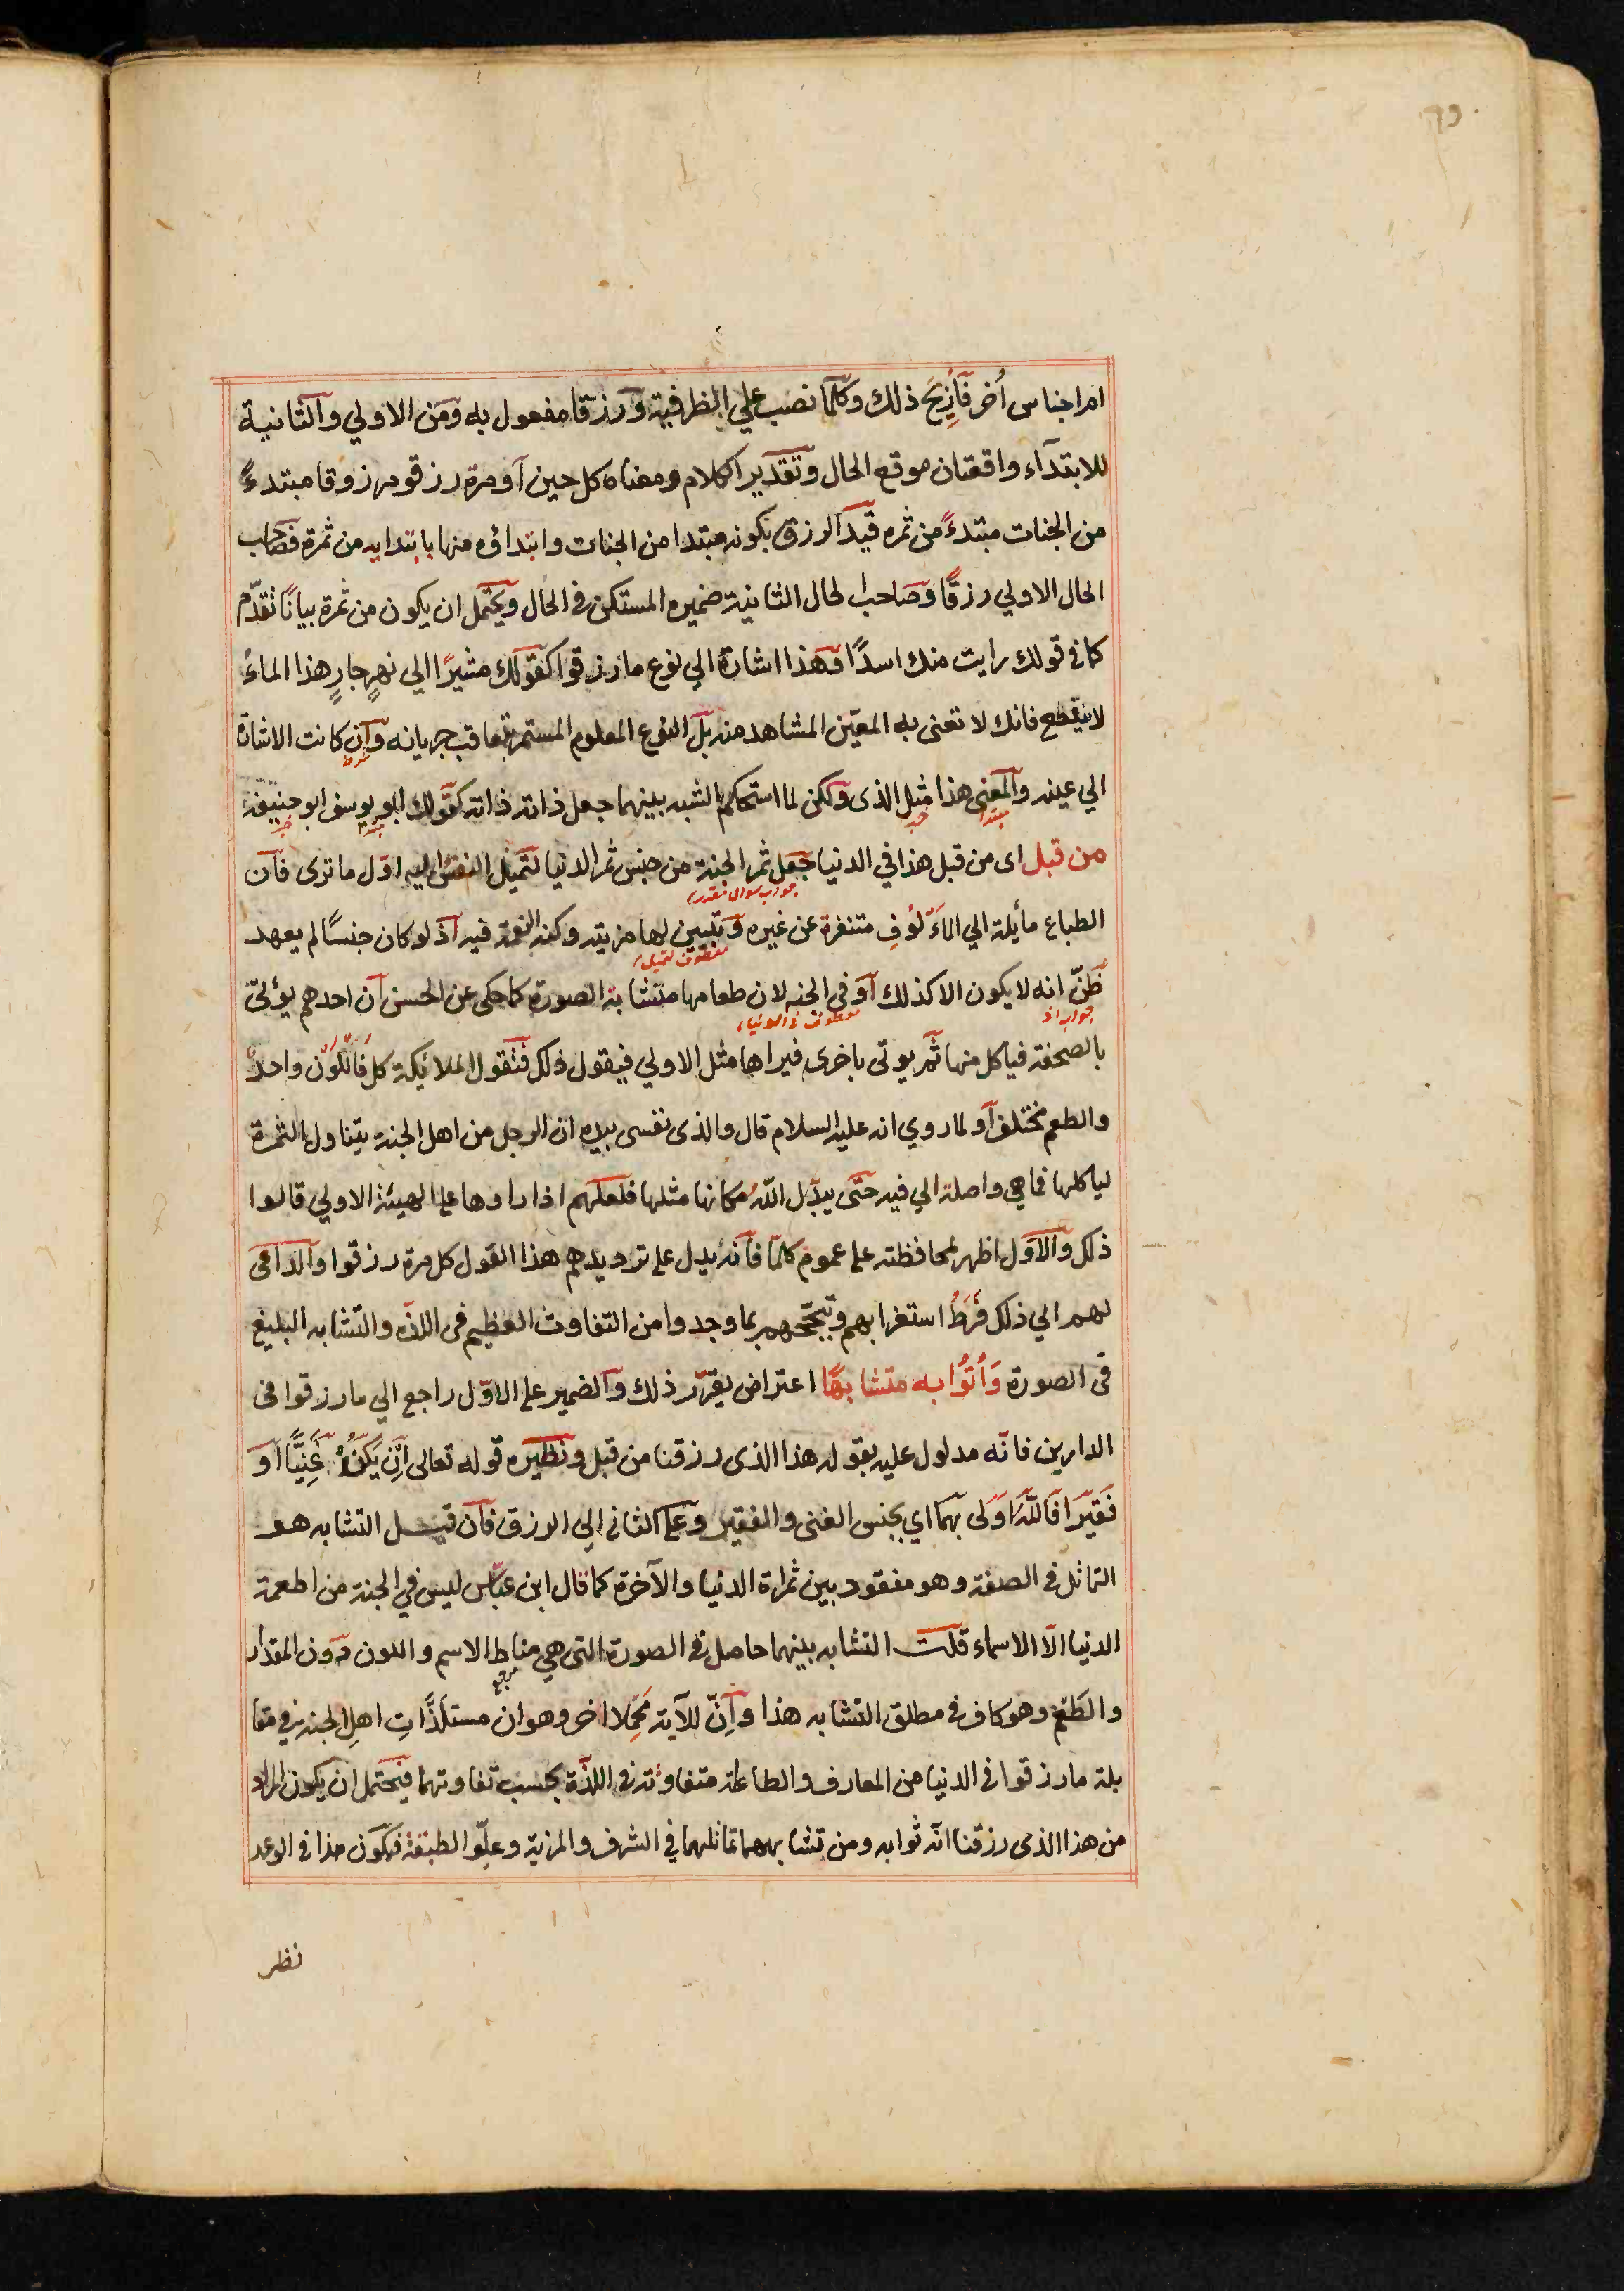 ام اجناس أُخر فَأُزِيحَ ذلك وكلّما نصب علي الظرفية ورزقا مفعول به ومن الاولي والثانية
للابتدآء واقعتان موقع الحال وتقدير الكلام ومعناه كل حين او مرة رزقو مرزوقا مبتدءً
من الجنات مبتدءً من ثمره قيد الرزق بكونه مبتدا من الجنات وابتداؤه منها بابتدايه من ثمرة فصاحب
الحال الاولي رزقًا وصاحب الحال الثانية ضميره المستكن في الحال ويحتمل ان يكون من ثمرة بيانًا تقدّم
كما في قولك رايت منك اسدًا وهذا اشارة الي نوع ما رزقوا كقولك مشيرًا الي نهرٍ جارٍ هذا الماءُ
لا ينقطع فانك لا تعنى به المعيّن المشاهد منه بل النوع المعلوم المستمر بتعاقب جريانه وان كانت الاشارة
شرط
الي عينه والمعنى هذا مثل الذى ولكن لما استحكم الشبه بينهما جعل ذاته ذاته كقولك ابو يوسف ابو حنيفة
مبتدا خبر مبتدا خبر
من قبل اى من قبل هذا في الدنيا جعل ثمر الجنة من جنس ثمر الدنيا لتميل النفس اليه اوّل ما ترى فان
جواب سوال مقدر
الطباع مأيلة الي المألوُفِ متنفرة عن غيره وتبيين لها مزيته وكنه النعمة فيه اذ لو كان جنسًا لم يعهد
معطوف لتميل
ظَنّ انه لا يكون الا كذلك او فى الجنه لان طعامها متشابة الصورة كما حكى عن الحسن ان احدهم يؤتى
جواب اذ معطوف في الدنيا
بالصحفة فياكل منها ثم يوتى باخرى فيراها مثل الاولي فيقول ذلك فتقول الملائيكة كل فَاللّونُ واحدٌ
والطعم مختلف او لما روي انه عليه السلام قال والذى نفسى بيده ان الرجل من اهل الجنة يتناول الثمرة
لياكلها فما هي واصلة الي فيه حتّى يبدّل اللهُ مكانها مثلها فلعلهم اذا راوها على الهيئة الاولي قالوا
ذلك والاوّل اظهر لمحافظته على عموم كلمّا فانه يدل على ترديدهم هذا القول كل مرة رزقوا والداعى
لهم الي ذلك فَرَطُ استغرابهم وتبجّحهم بما وجدوا من التفاوت العظيم فى اللذه والتشابه البليغ
فى الصورة وَأُتُوُا به متشابهًا اعتراض يقرّر ذلك والضمير على الاوّل راجع الي ما رزقوا فى
الدارين فانّه مدلول عليه بقوله هذا الذى رزقنا من قبل ونظيره قوله تعالى اِنْ يَكُنْ غَنِيًّا اَوْ
فَقيَرًا فَاللَّهُ اوَلى بهما اي بجنس الغنى والفقير وعلى الثانى الي الرزق فان قيـل التشابه هو
التماثل في الصفة وهو مفقود بين ثمراة الدنيا والآخرة كما قال ابن عبّاس ليس في الجنة من اطعمة
الدنيا الّا الاسماء قلت التشابه بينهما حاصل في الصورة التى هي مناط الاسم واللون دون المقدار
مرجع
والطَعْمِ وهو كاف في مطلق التشابه هذا واِنّ للآية مَحْمِلا اخر وهو ان مستلَذَّاتِ اهلِ الجنة في مقا
بلة ما رزقوا في الدنيا من المعارف والطاعات متفاوتة في اللذّة بحسب تفاوتها فيحتمل ان يكون المراد
من هذا الذى رزقنا انّه ثوابه ومن تشابههما تماثلهما في الشرف والمزية وعلّو الطبقة فيكون هذا في الوعد
نظر